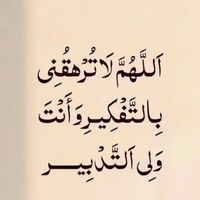 اَللَّهُمَّ لَا تُرْهِقُنِى
بِالتَّفْكِيرِ وَأَنْتَ
وَلِى اَلتَّدْبِيـــر